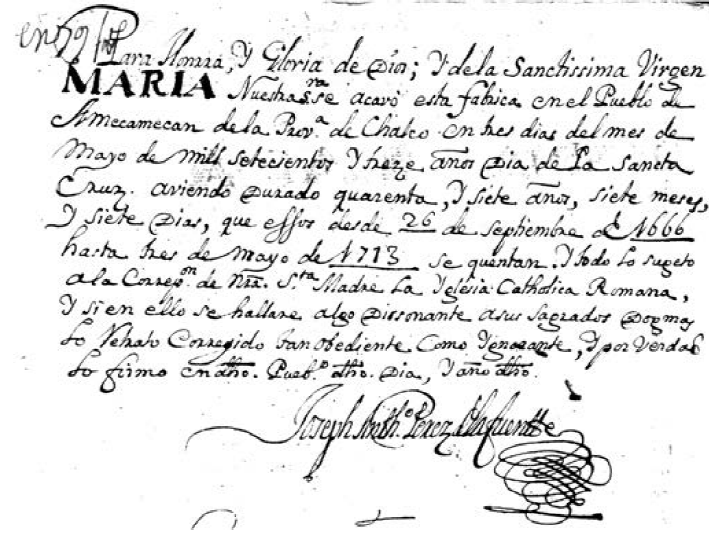 en 79
Para Honrra, Y Gloria de Dios; Y de la Sanctissima Virgen
MARIA Nuestra Sra. se acavò esta fabrica en el Pueblo de
Amecamecan de la Prov.ª de Chalco en tres dias del mes de
Mayo de mill setecientos Y treze años Dia de La Sancta
Cruz. aviendo Durado quarenta, Y siete años, siete meses,
Y siete Dias, que essos desde 26 de septiembre de 1666
hasta tres de mayo de 1713 se quentan. Y todo lo sugeto
a la Correçⁿ. de Nrã. S.ta Madre La Yglesia Catholica Romana,
Y si en ello se hallare algo Dissonante a sus Sagrados Dogmas
Lo Corregido tan obediente Como Ygnorante, Y por Verdad
Lo firmo en dho. Pueb.º dho. Dia, Y año dho.
Joseph Anth.º Perez dlafuentte